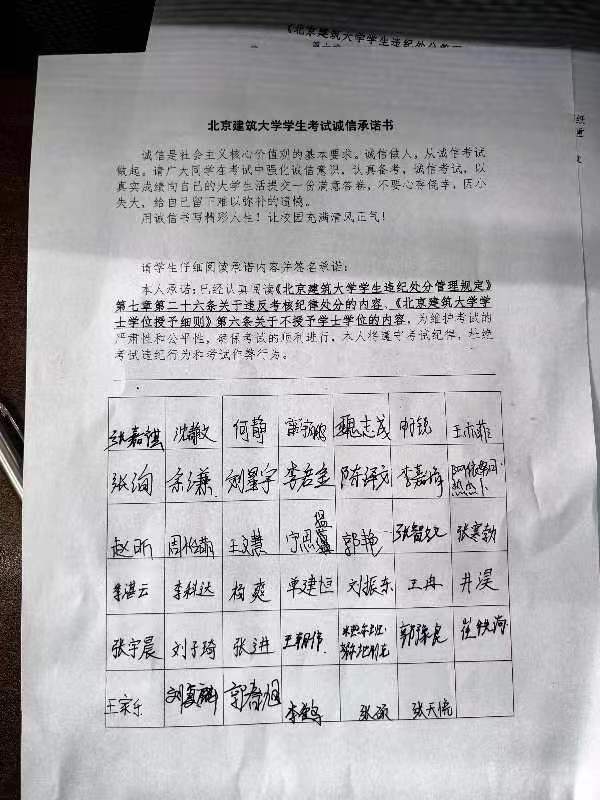 《北京建筑大学学生违纪处分管理
北京建筑大学学生考试诚信承诺书
诚信是社会主义核心价值观的基本要求。诚信做人，从诚信考试
做起。请广大同学在考试中强化诚信意识，认真备考，诚信考试，以
真实成绩向自己的大学生活提交一份满意答卷，不要心存侥幸，因小
失大，给自己留下难以弥补的遗憾。
用诚信书写精彩人生！让校园充满清风正气！
请学生仔细阅读承诺内容并签名承诺：
本人承诺：已经认真阅读《北京建筑大学学生违纪处分管理规定》
第七章第二十六条关于违反考核纪律处分的内容、《北京建筑大学学
士学位授予细则》第六条关于不授予学士学位的内容，为维护考试的
严肃性和公平性，确保考试的顺利进行，本人将遵守考试纪律，杜绝
考试违纪行为和考试作弊行为。
张嘉祺 沈静文 何静 魏志茂
张洵 余谦 刘星宇 李君宝 陈泽方 李嘉海
赵昕 周怡萌 王文慧 郭艳 张智文 张寒勃
李湛云 李科达 杨爽 单建恒 刘振东 王冉 井浸
张宇晨 刘子琦 张进 王朝伟
王家乐 刘夏麟 郭春旭 李鹤 张硕 张天倚